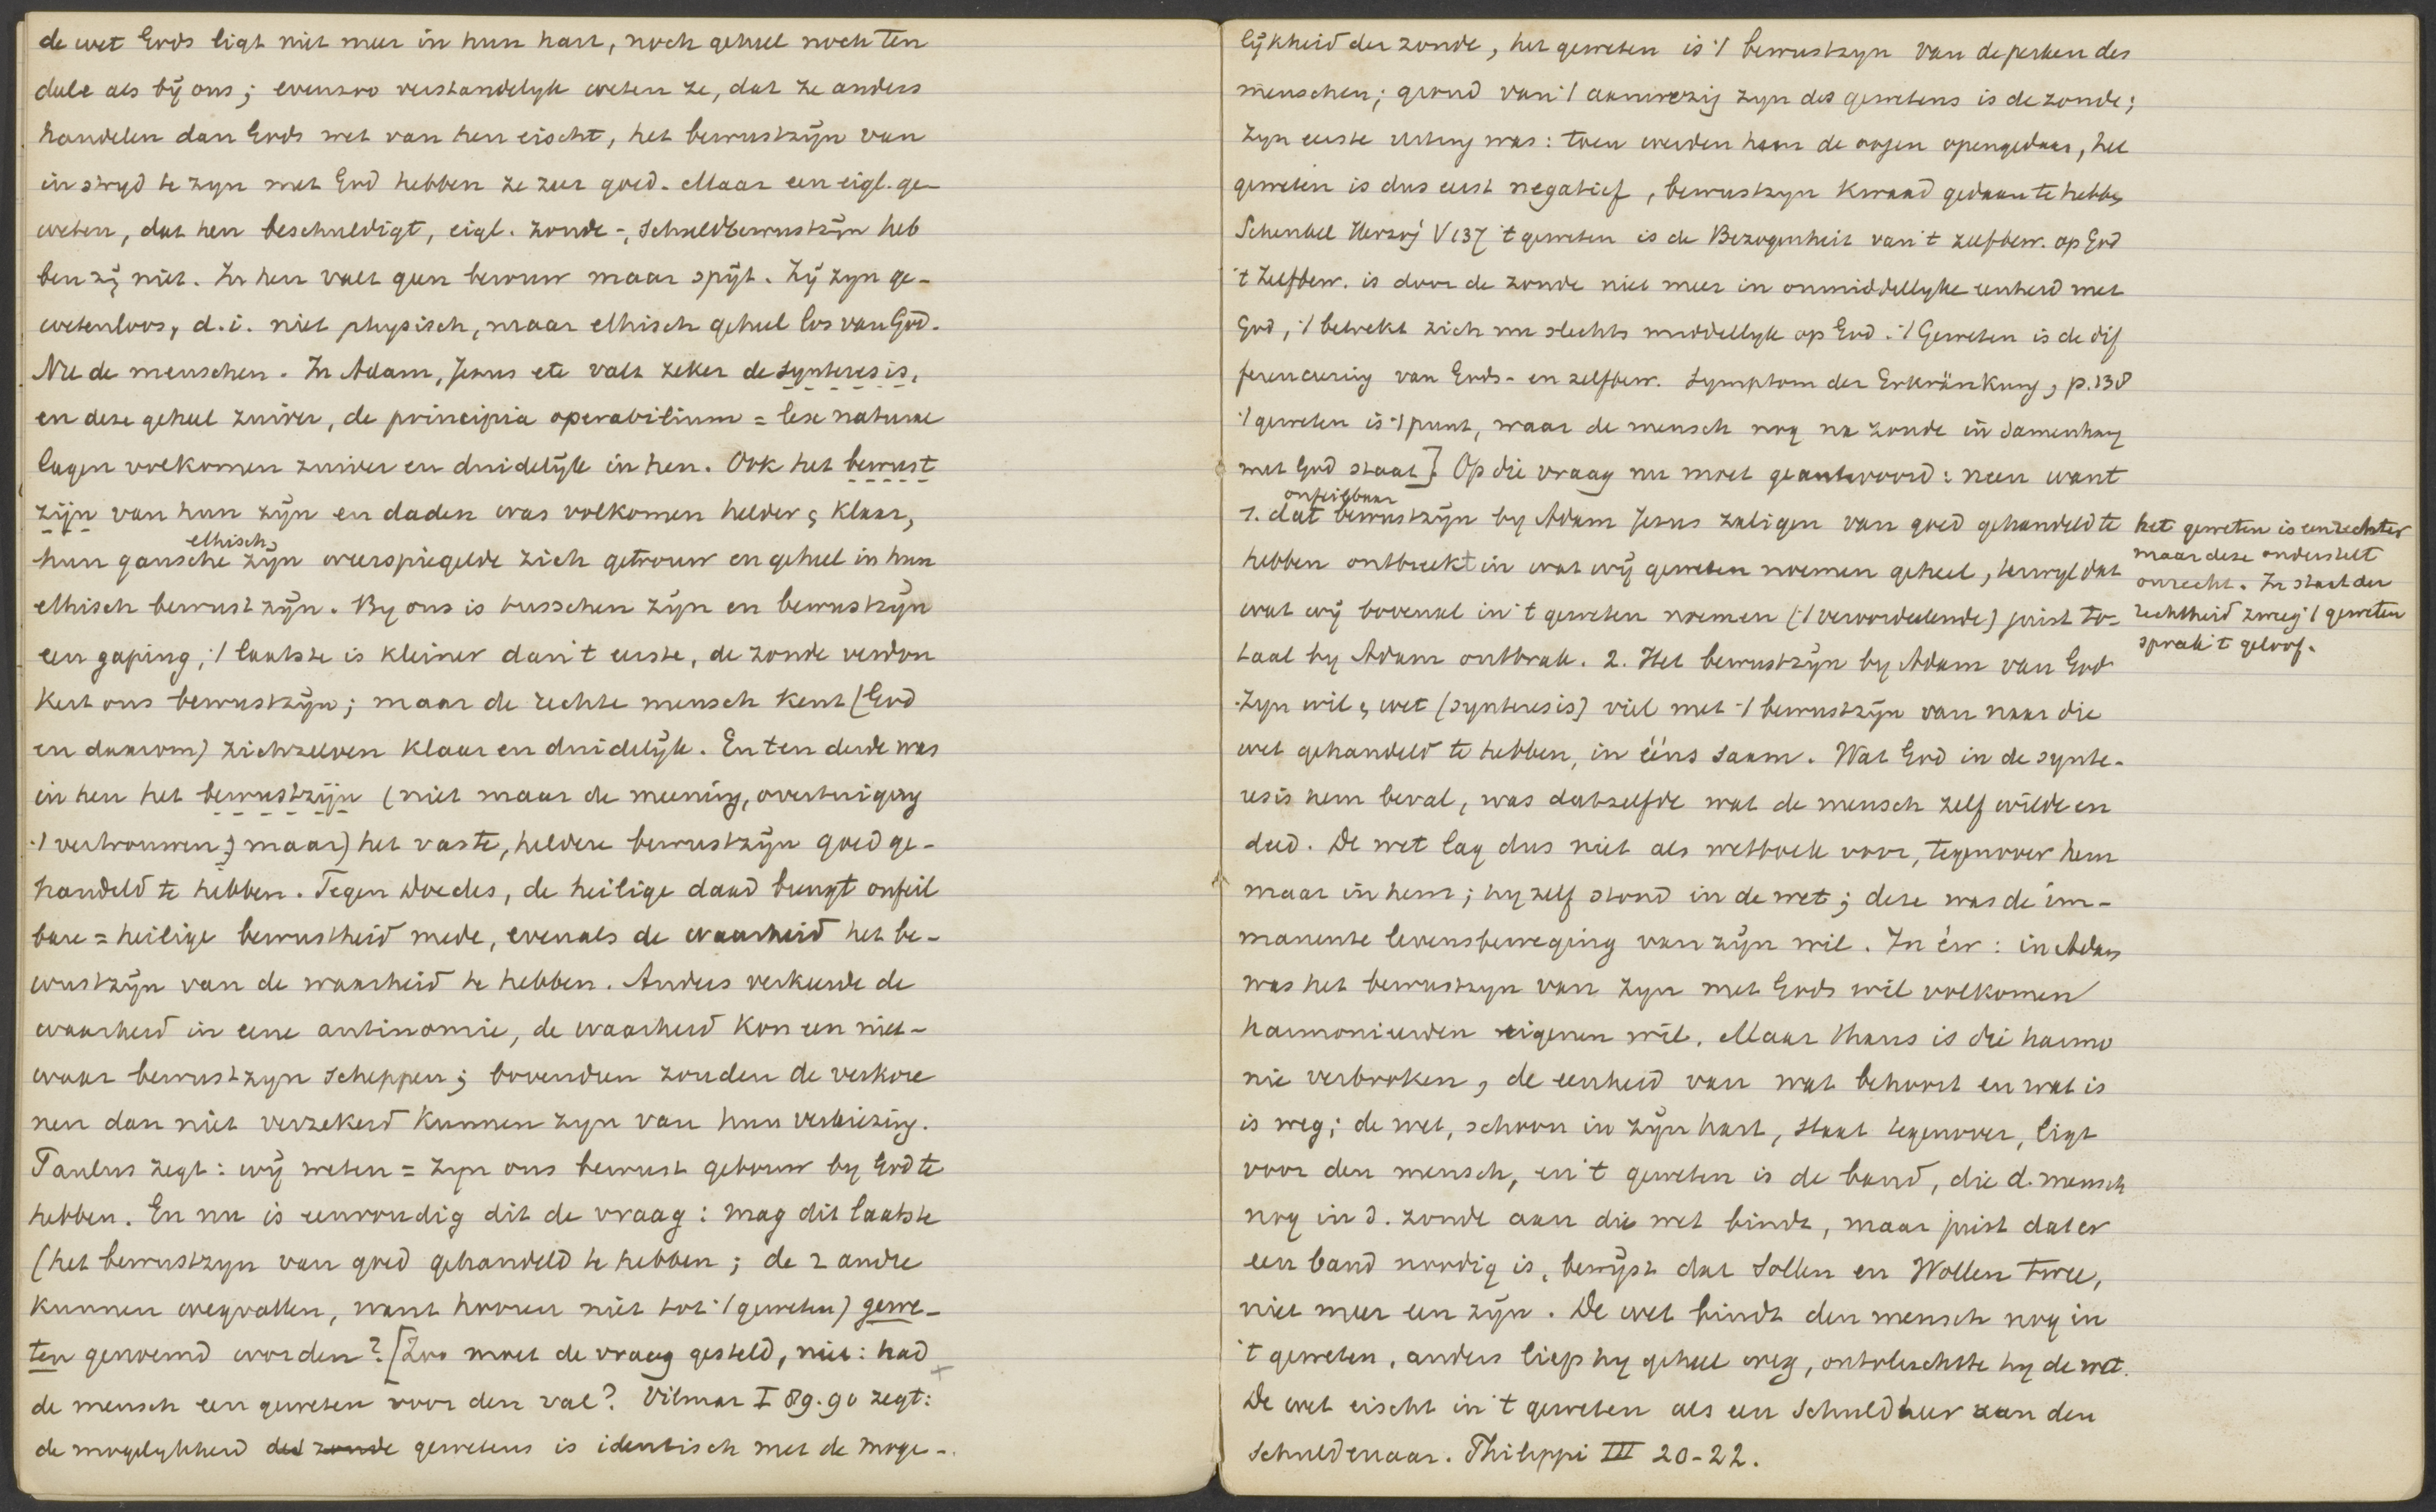 de wet Gods ligt niet meer in hun hart, noch geheel noch ten
deele als bij ons; evenzoo verstandelyk weten ze, dat ze anders
handelen dan Gods wet van hen eischt, het bewustzijn van
in stryd te zyn met God hebben ze zeer goed. Maar een eigl. ge-
weten, dat hen beschuldigt, eigl. zonde-, schuldbewustzijn heb
ben zij niet. In hen valt geen berouw maar spijt. Zij zyn ge-
wetenloos, d.i. niet physisch, maar ethisch geheel los van God.
Nu de menschen. In Adam, Jezus etc valt zeker de synteresis,
en deze geheel zuiver, de principia operabilium = lex naturae
lagen volkomen zuiver en duidelijk in hen. Ook het bewust
zijn van hun zijn en daden was volkomen helder & klaar,
hun gansche ethisch zijn weerspiegelde zich getrouw en geheel in hun
ethisch bewustzijn. By ons is tusschen zijn en bewustzijn
een gaping, 't laatste is kleiner dan 't eerste, de zonde verdon
kert ons bewustzijn; maar de rechte mensch kent (God
en daarom) zichzelven klaar en duidelijk. En ten derde was
in hen het bewustzijn (niet maar de meening, overtuiging
't vertrouwen; maar) het vaste, heldere bewustzijn goed ge-
handeld te hebben. Tegen Doedes, de heilige daad brengt onfeil
bare = heilige bewustheid mede, evenals de waarheid het be-
wustzijn van de waarheid te hebben. Anders verkeerde de
waarheid in eene antinomie, de waarheid kon een niet-
waar bewustzyn scheppen; bovendien zouden de verkore
nen dan niet verzekerd kunnen zyn van hun verkiezing.
Paulus zegt: wij weten = zyn ons bewust gebouw by God te
hebben. En nu is eenvoudig dit de vraag: mag dit laatste
(het bewustzyn van goed gehandeld te hebben; de 2 andre
kunnen wegvallen, want hooren niet tot 't geweten) gewe-
ten genoemd worden? [Zoo moet de vraag gesteld, niet: had
de mensch een geweten voor den val? Vilmar I 89.90 zegt:
de mogelykheid des zonde gewetens is identisch met de moge-
lijkheid der zonde, het geweten is 't bewustzyn van de perken des
menschen; grond van 't aanwezig zyn des gewetens is de zonde;
Zyn eerste uiting was: toen werden hem de oogen opengedaan, het
geweten is dus eerst negatief, bewustzyn kwaad gedaan te hebben
Schenkel Herzog V 137 't geweten is de Bezogenheit van 't zelfbew. op God
't Zelfbew. is door de zonde niet meer in onmiddellyke eenheid met
God, 't betrekt zich nu slechts middellyk op God. 't Geweten is de dif
ferencieering van Gods- en zelfbew. Symptom der Erkränkung, p.138
't geweten is 't punt, waar de mensch nog na zonde in samenhang
met God staat]. Op die vraag nu moet geantwoord: neen want
1. dat onfeilbaar bewustzijn by Adam Jezus zaligen van goed gehandeld te
hebben ontbreekt in wat wij geweten noemen geheel, terwyl dat
wat wij bovenal in 't geweten noemen ('t veroordeelende) juist to-
taal by Adam ontbrak. 2. Het bewustzijn by Adam van God
zyn wil & wet (synteresis) viel met 't bewustzijn van naar die
wet gehandeld te hebben, in ééns saam. Wat God in de synte-
resis hem beval, was datzelfde wat de mensch zelf wilde en
deed. De wet lag dus niet als wetboek voor, tegenover hem
maar in hem; hy zelf stond in de wet; deze was de im-
manente levensbeweging van zijn wil. In één: in Adam
was het bewustzyn van zyn met Gods wil volkomen
harmonieerden eigenen wil. Maar thans is die harmo
nie verbroken, de eenheid van wat behoort en wat is
is weg; de wet, schoon in zijn hart, staat tegenover, ligt
voor den mensch, en 't geweten is de band, die d. mensch
nog in d. zonde aan die wet bindt, maar juist dat er
een band noodig is, bewijst dat Sollen en Wollen twee,
niet meer een zijn. De wet bindt den mensch nog in
't geweten, anders liep hy geheel weg, ontvluchtte hy de wet.
De wet eischt in 't geweten als een Schuldheer aan den
Schuldenaar. Philippi III 20-22.
het geweten is een rechter
maar deze onderstelt
onrecht. In staat der
rechtheid zweeg 't geweten
sprak 't geloof.